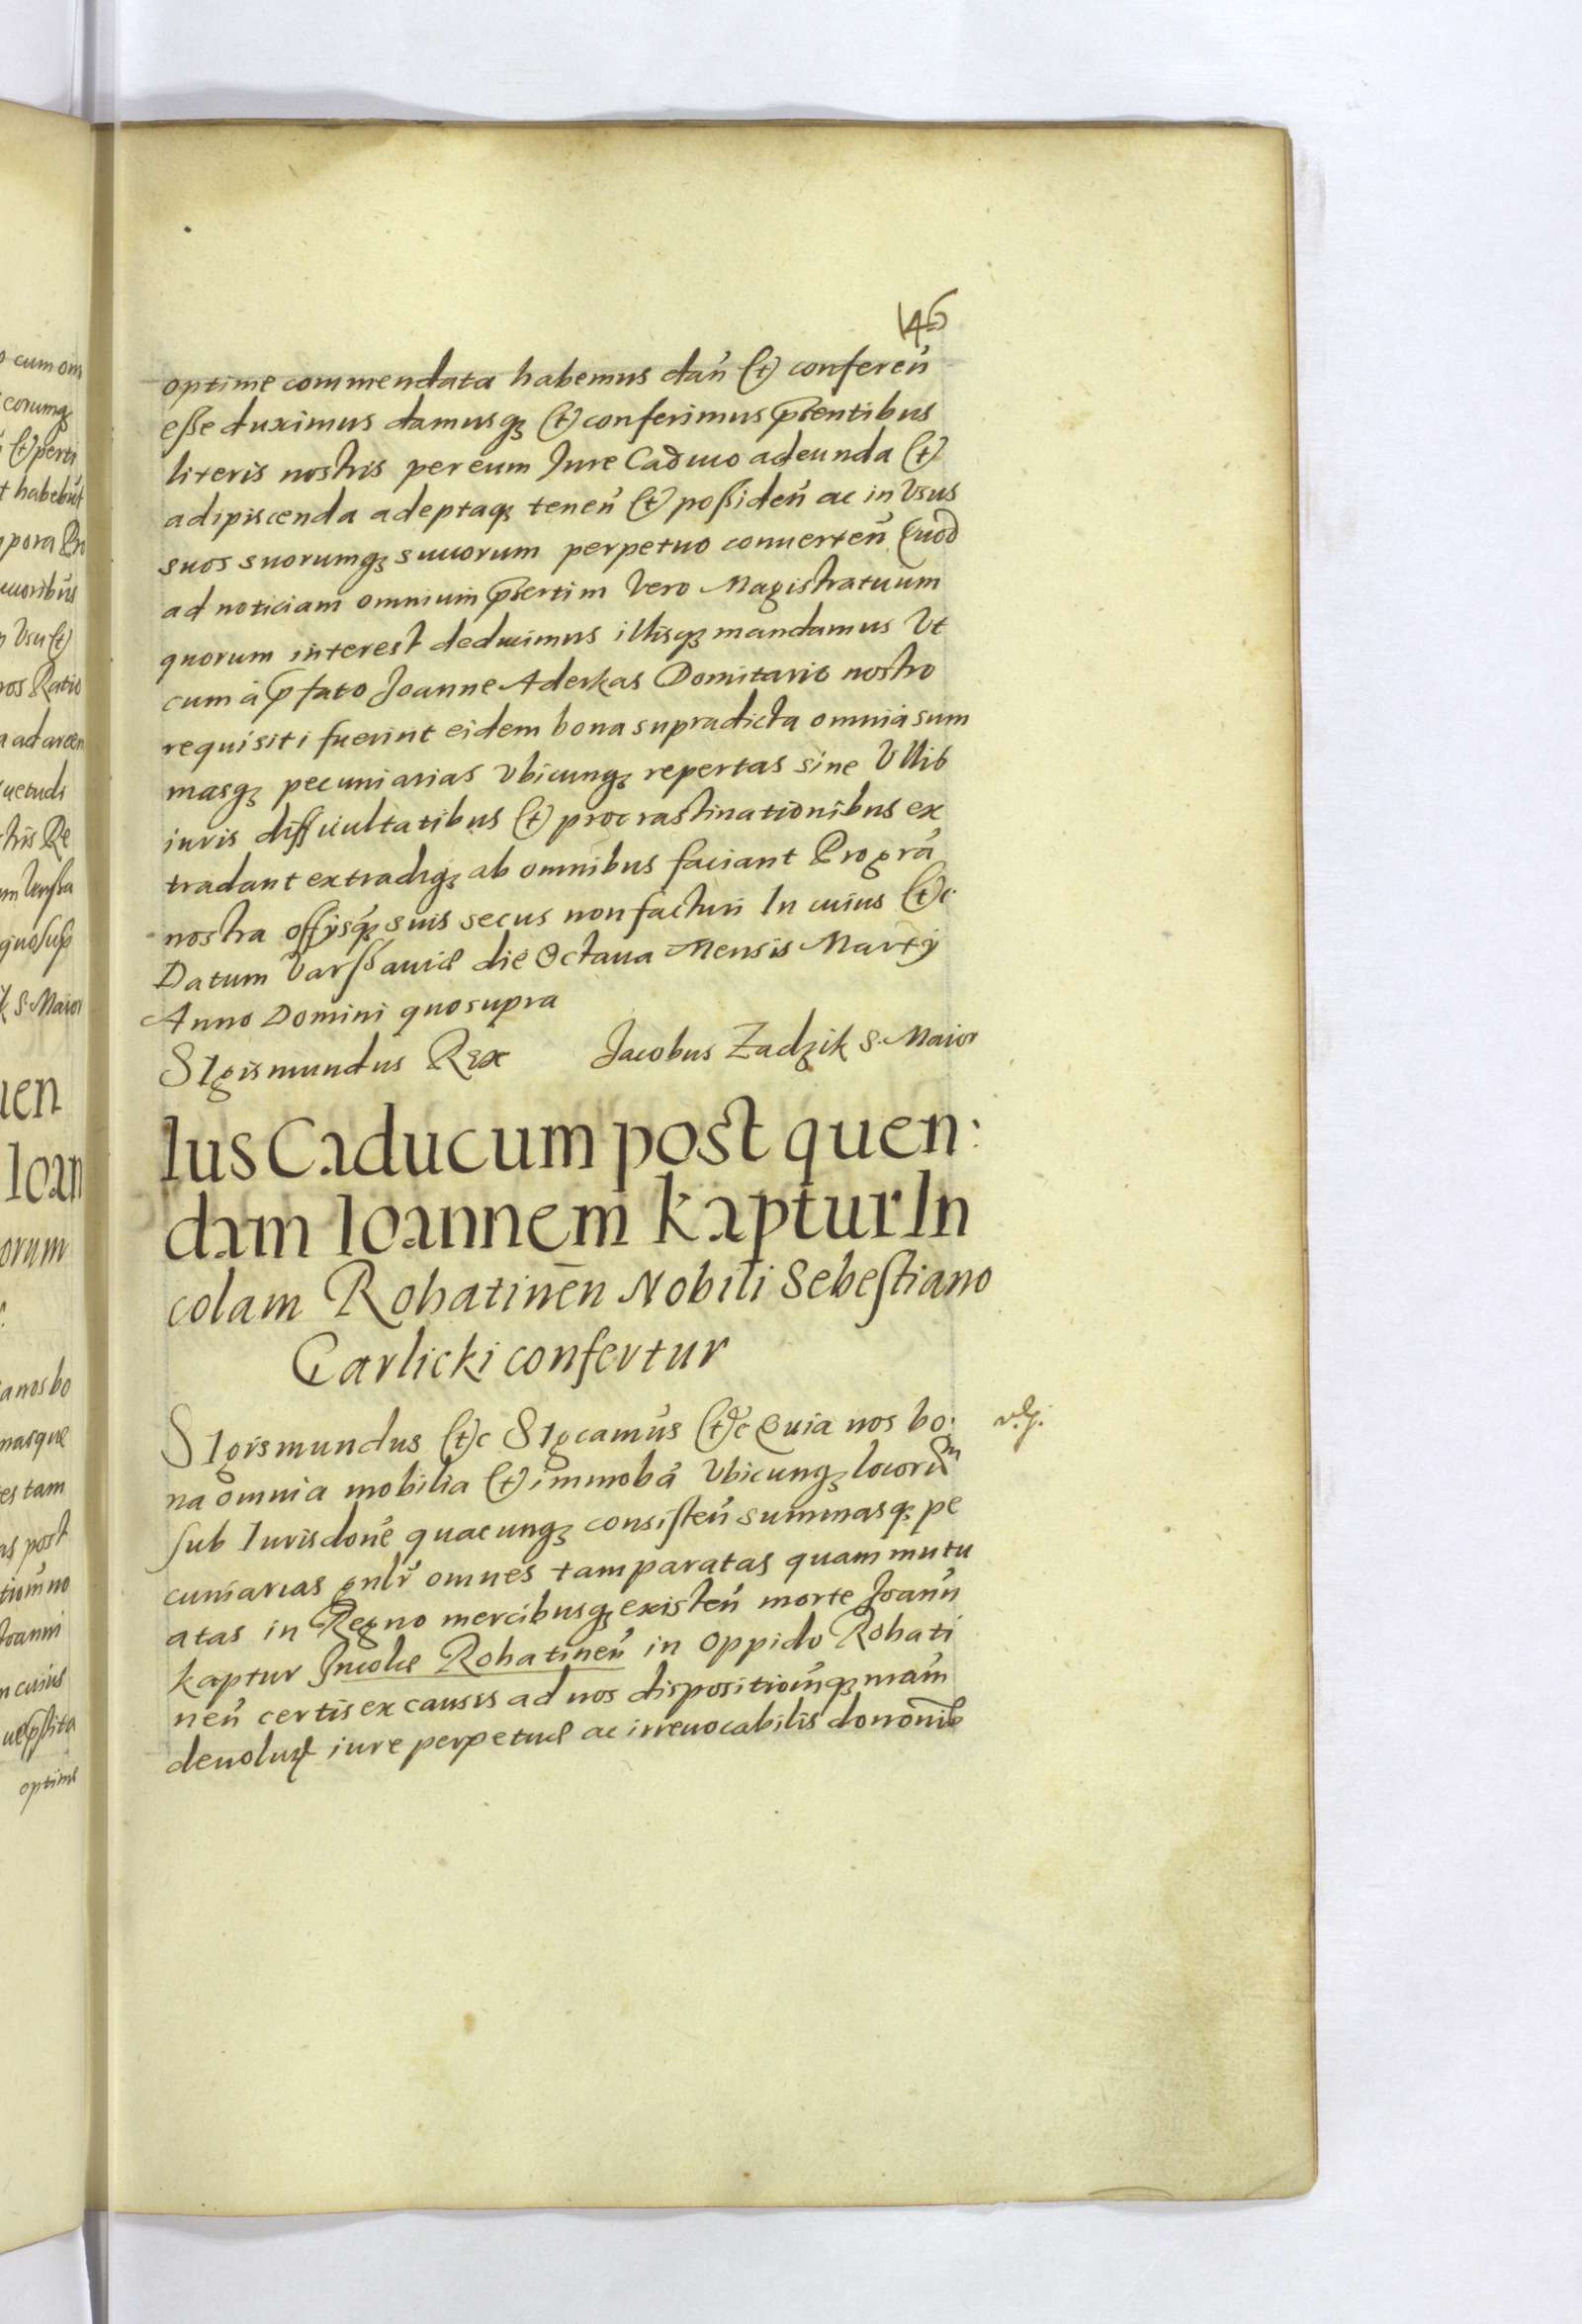 146
optime commendata habemus dan̄ (et) conferen̄
esse duximus damusq₃ (et) conferimus p̄sentibus
literis nostris per eum Jure Caduco adeunda (et)
adipiscenda adeptaq₃ tenen̄ (et) possiden̄ ac in Vsus
suos suorumq₃ suuorum perpetuo conuerten̄ Quod
ad noticiam omnium p̄sertim Vero Magistratuum
quorum interest deducimus illisq₃ mandamus Vt
cum à p̄fato Joanne Aderkas Domitario nostro
requisiti fuerint eidem bona supradicta omnia sum
masq₃ pecuniarias Vbicunq₃ repertas sine Vllis
iuris difficultatibus (et) procrastinationibus ex
tradant extradiq₃ ab omnibus faciant Pro grā
nostra offijsq₃ suis secus non facturi In cuius (et)c
Datum Varssauiæ die Octaua Mensis Martij
Anno Domini quo supra
SIgismundus Rex Jacobus Zadzik S. Maior
Ius Caducum post quen:
dam Ioannem Kaptur In
colam Rohatinēn Nobili Sebestiano
Garlicki confertur
SIgismundus (et)c SIgcamus (et)c Quia nos bo:
na omnia mobilia (et) immobā Vbicunq₃ locorūm
sub Iurisdone quacunq₃ consisten̄ summasq₃ pe
cuniarias gnlr̄ omnes tam paratas quam mutu
atas in Regno mercibusq₃ existen̄ morte Joann̄
Kaptur Incolæ Rohatinen̄ in oppido Rohati
nen̄ certis ex causis ad nos dispositiōnq₃ mam̄
deuoluṭ iure perpetuæ ac irreuocabilis dononis̄